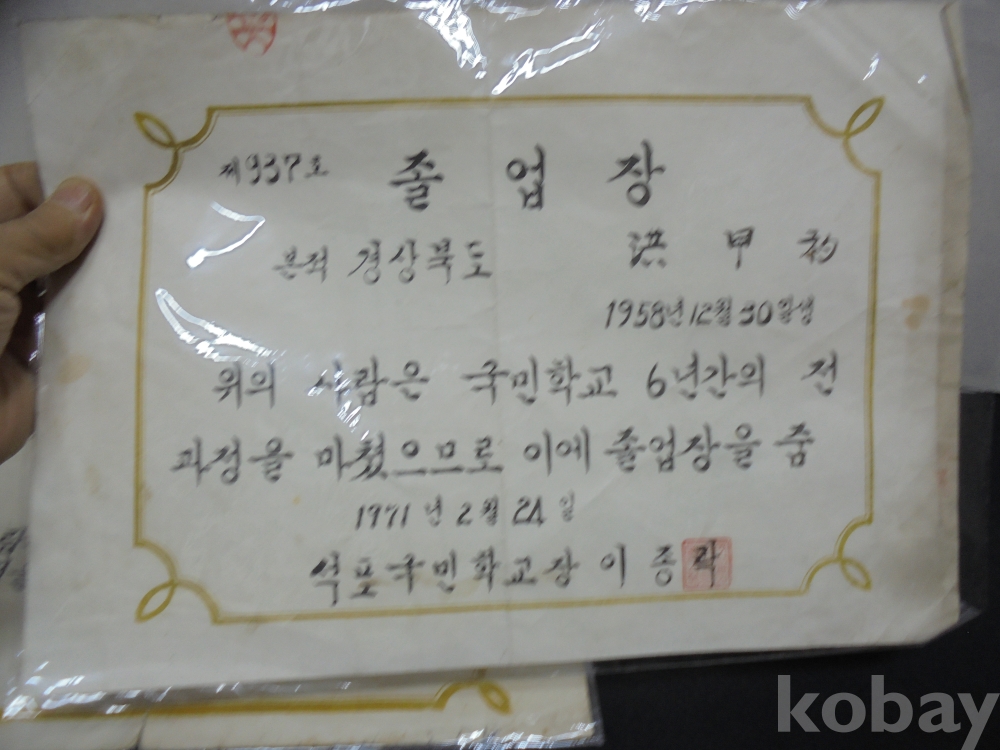 제937호 졸업장
본적 경상북도 洪甲
1958년 12월 30일생
위의 사람은 국민학교 6년간의 전
과정을 마쳤으므로 이에 졸업장을 줌
1971년 2월 24일
석포국민학교장 이종락
kobay